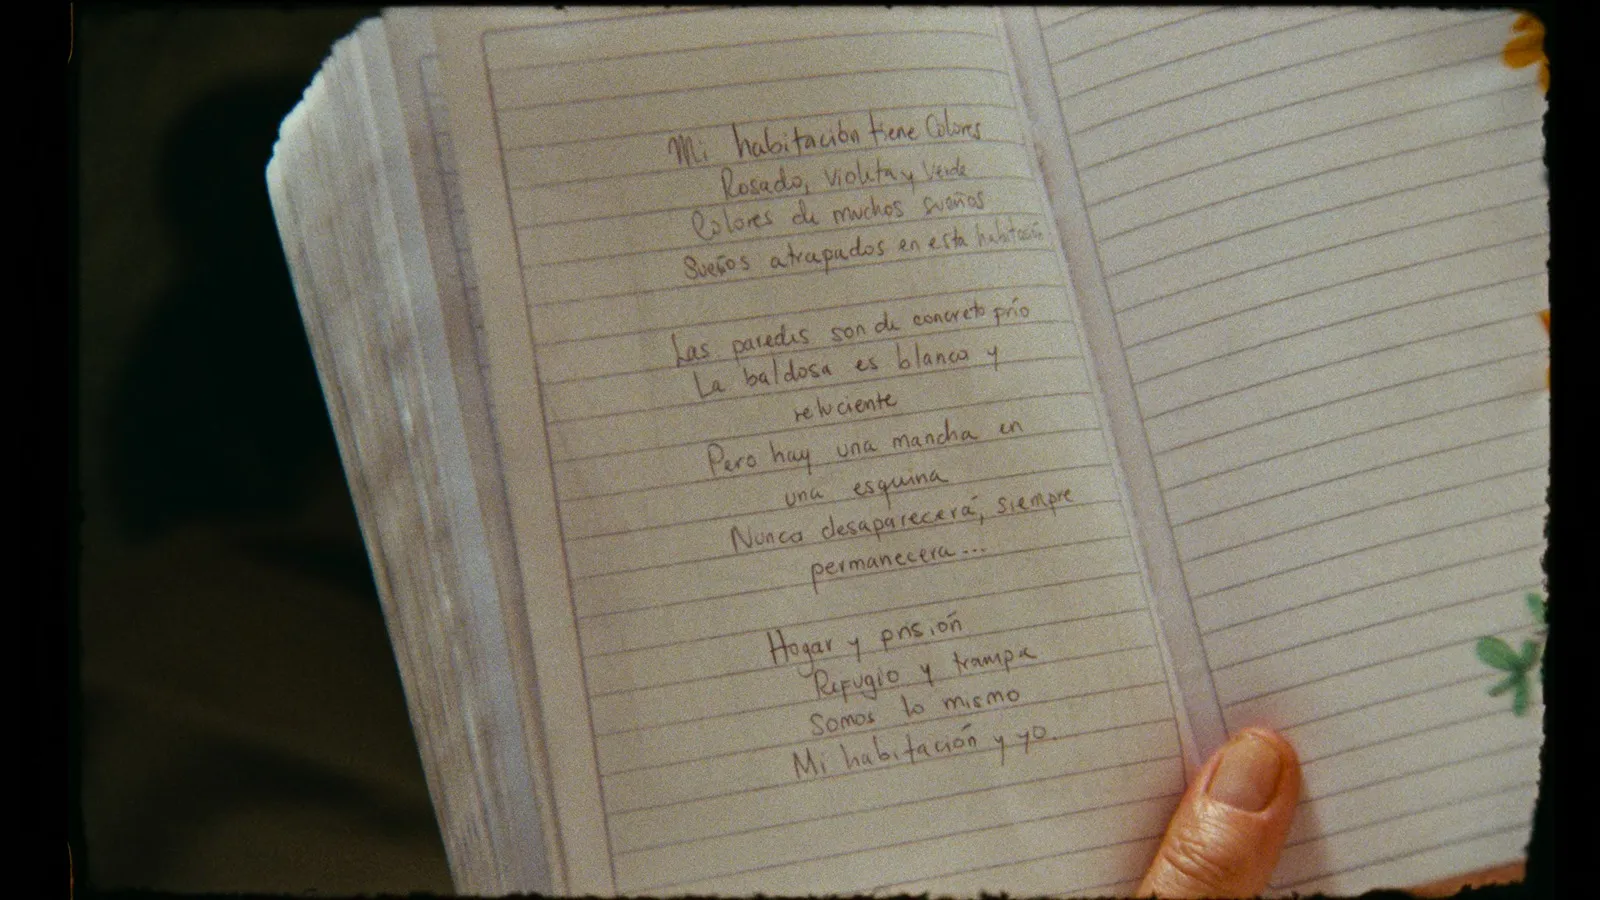 Mi habitación tiene Colores
Rosado, violeta y verde
Colores de muchos sueños
Sueños atrapados en esta habitación
Las paredes son de concreto frío
La baldosa es blanca y
reluciente
Pero hay una mancha en
una esquina
Nunca desaparecerá, siempre
permanecera...
Hogar y prisión
Refugio y trampa
Somos lo mismo
Mi habitación y yo.